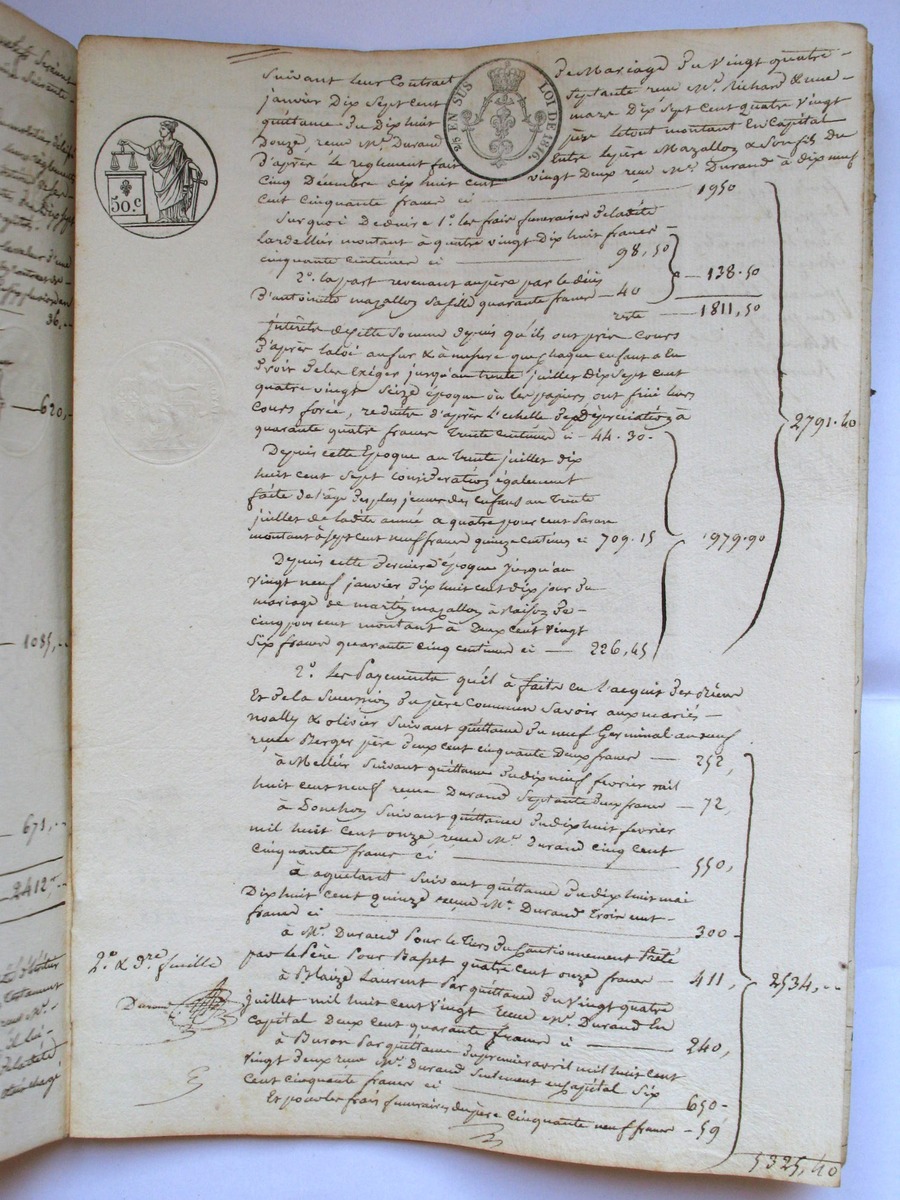 Suivant leur Contrat de Mariage du Vingt quatre
janvier Dix Sept cent Septante reçu Me. Richard
quittance du Dix huit mars Dix Sept cent quatre vingt
Douze, reçue Me. Durand père le tout montant En Capital
D'après le reglement fait Entre le père Mazallon & Son fils du
Cinq Décembre dix huit cent vingt Deux reçu Me. Durand à dix neuf
Cent cinquante francs ci 1950
Sur quoi Deduire 1°. les frais funeraires de ladite
montant à quatre vingt Dix huit francs
cinquante centimes ci 98,50
2°. la part revenant au père par le décès
D'antoinette mazallon sa fille quarante francs 40
138.50
reste 1811,50
Intérêts de cette Somme Depuis qu'ils ont pris Cours
D'après la loi au fur & à mesure que chaque enfant a eu
Droit de les Exiger jusqu'au trente juillet Dix Sept cent
quatre vingt Seize époque où les papiers ont fini leurs
Cours forcé, reduits d'après l'echelle de Dépreciation à
quarante quatre francs Trente Centimes ci 44.30.
2791.40
Depuis cette Epoque au Trente juillet dix
huit cent Sept consideration également
faite de l'âge des plus jeunes des enfans au Trente
juillet de ladite année a quatre pour cent Sans
montant à Sept cent neuf francs quinze centimes ci 709.15
979.90
Depuis cette Derniere époque jusqu'au
Vingt neuf janvier Dix huit cent dix jour du
mariage de mazallon à Raison De
cinq pour cent montant à Deux cent Vingt
Six francs quarante cinq centimes ci 226,45
2°. Les Payements qu'il à faits en l'acquit Des
Et de la Succession du père Commun Savoir aux mariés
noally & olivier Suivant quittance du neuf Germinal an neuf
reçue Berger père Deux cent cinquante Deux francs 252,
à Mellier Suivant quittance du dix neuf fevrier mil
huit cent neuf reçue Durand Septante deux francs 72,
à Donchon Suivant quittance du dix huit fevrier
mil huit cent onze reçue Me. Durand cinq cent
Cinquante francs ci 550,
à aquetant Suivant quittance du dix huit mai
Dix huit cent quinze reçue Me. Durand Trois cent
francs ci 300
à Me. Durand Pour le tiers du Cautionnement Prêté
par le Père Pour Basset quatre cent onze francs 411,
2534,
à Blaize Laurent Par quittance du Vingt quatre
juillet mil huit cent Vingt reçue Me. Durand En
Capital Deux cent quarante francs ci 240,
à Buron Par quittance du premier avril mil huit cent
Vingt Deux reçue Me. Durand Seulement en Capital Six
Cent cinquante francs ci 650
Et pour les frais funeraires du père Cinquante neuf francs 59
5325,40
2e. & Dre. feuille
Durand
50.c
2/5 EN SUS LOI DE 1816.
36,
620,
1085,
671,
2412